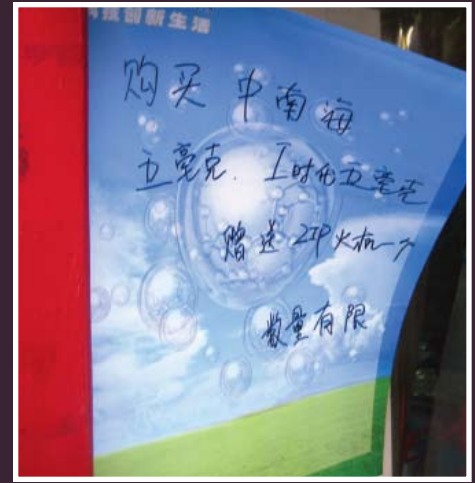 科技创新生活
购买 中南海
五毫克. I时代五毫克
赠送 ZIP火机一个
数量有限